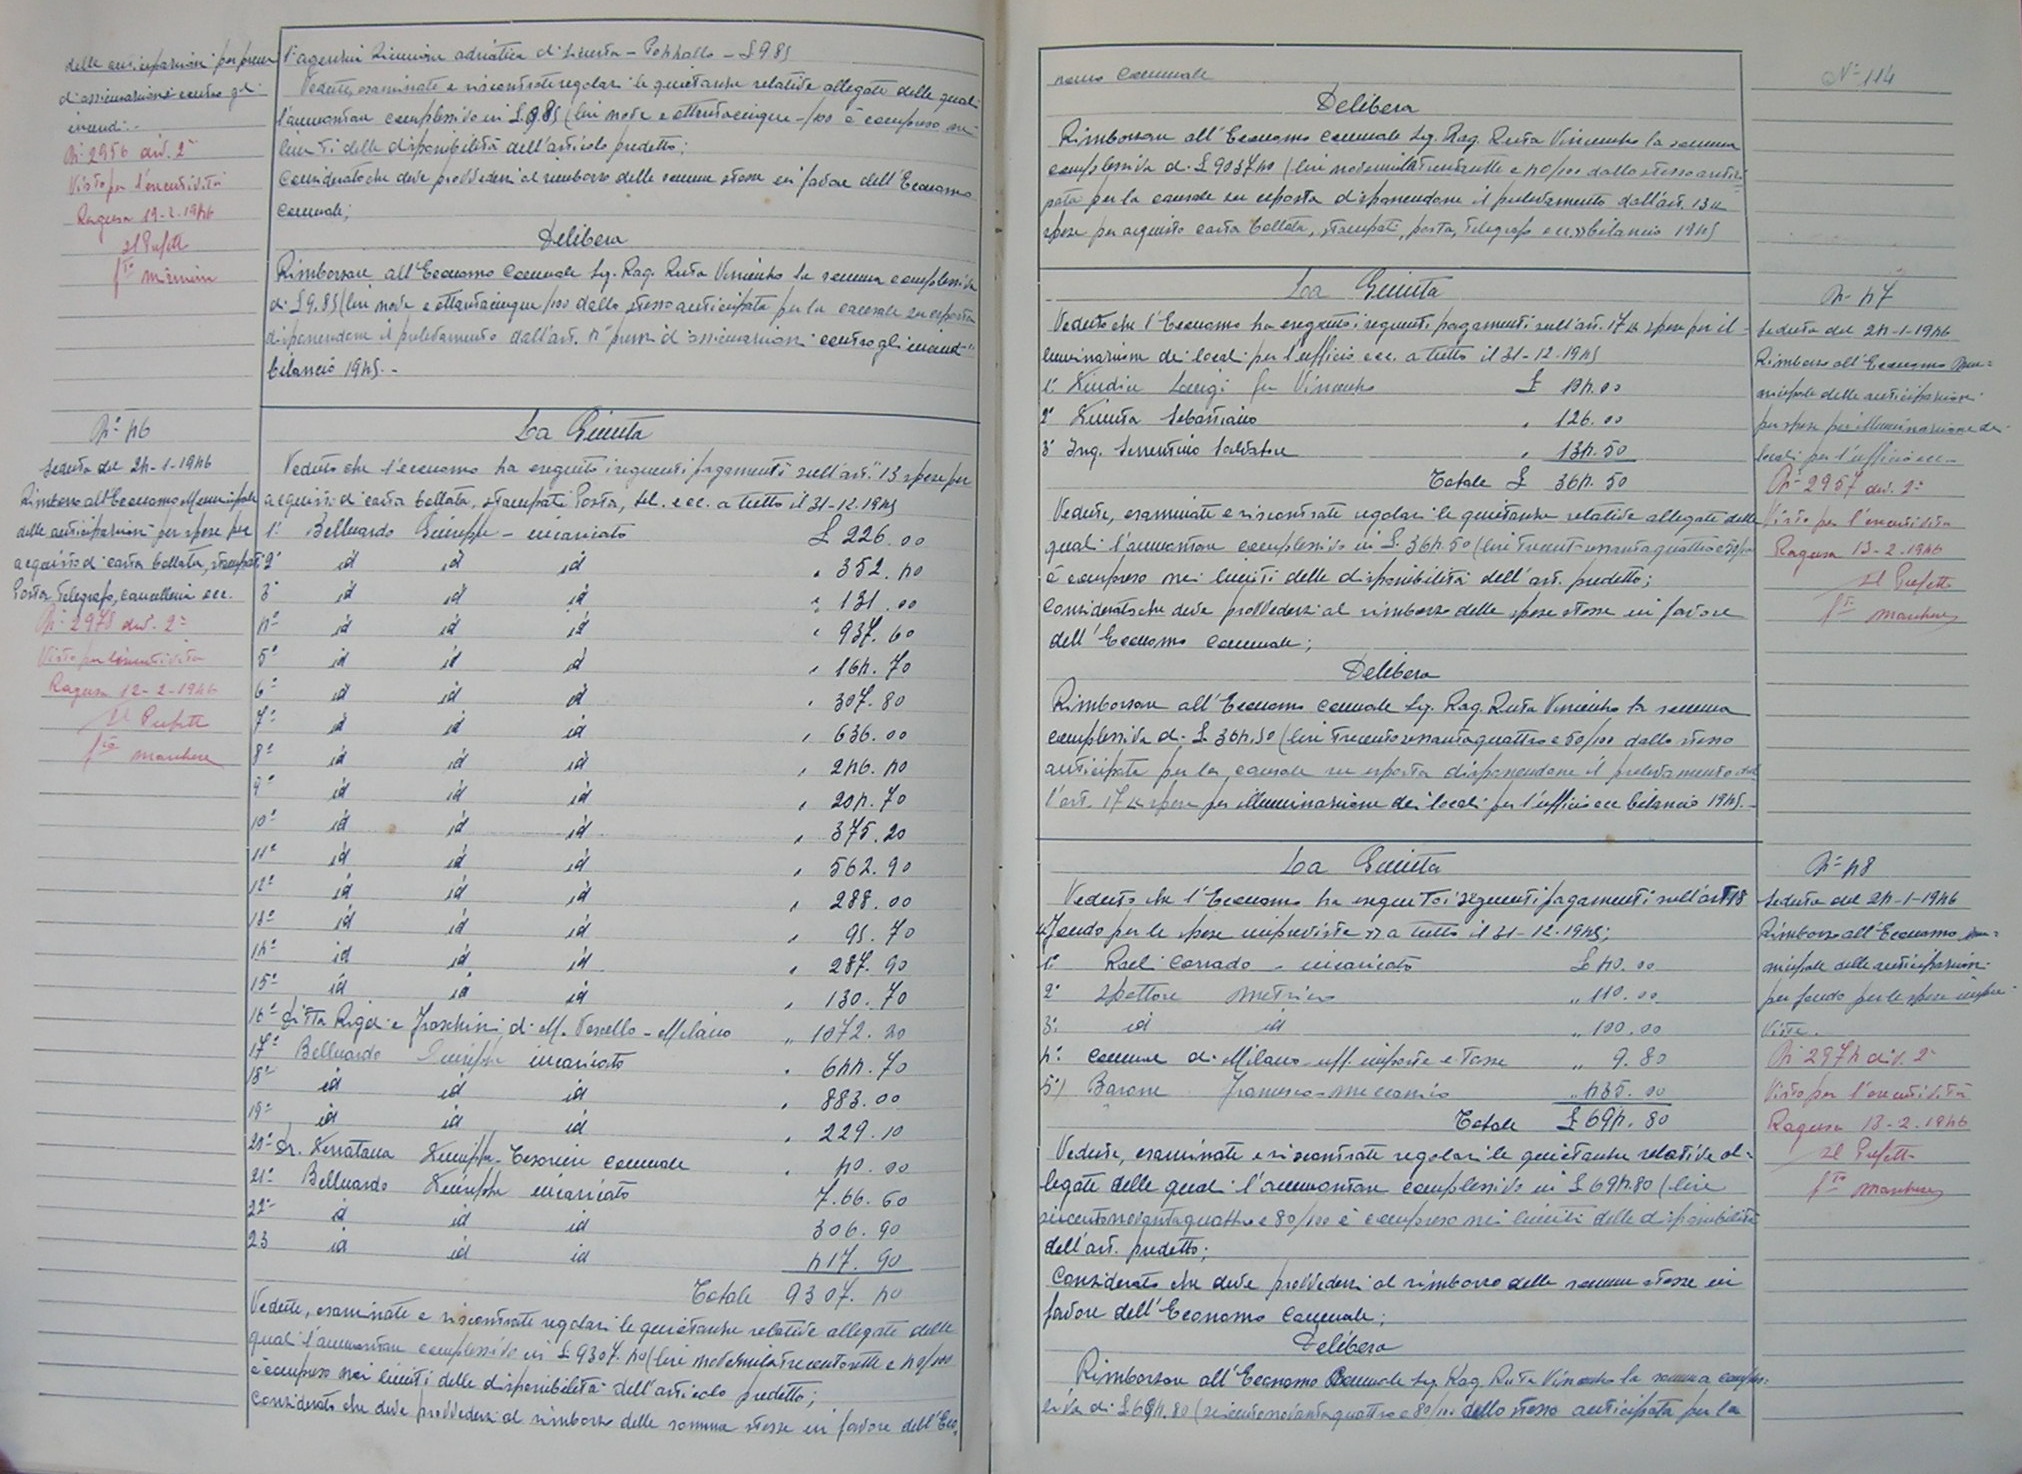 delle anticipazioni per premi
d'assicurazione contro gl'
incendi.-
N° 2956 div. 2ª
Visto per l'esecutività
Ragusa 19-2-1946
Il Prefetto
l'agenzia Riunione adriatica di Sicurtà - Pozzallo - £ 9.85
Vedute, esaminate e riscontrate regolari le quietanze relative allegate delle quali
l'ammontare complessivo in £. 9.85 (lire nove e ottantacinque/100 è compreso nei
limiti delle disponibilità dell'articolo predetto;
Considerato che deve provvedersi al rimborso delle somme stesse in favore dell'Economo
Comunale;
Delibera
Rimborsare all'Economo Comunale Sig. Rag. Ruta Vincenzo la somma complessiva
di £ 9.85 (lire nove e ottantacinque/100 dallo stesso anticipata per la causale su esposta
disponendone il prelevamento dall'art. "premi d'assicurazioni contro gli incendi"
bilancio 1945.-
N° 46
Seduta del 24-1-1946
Rimborso all'Economo Municipale
delle anticipazioni per spese per
acquisto di carta bollata, stampati
Posta, Telegrafo, cancelleria ecc.
N° 2978 div. 2ª
Visto per l'esecutività
Ragusa 12-2-1946
Il Prefetto
La Giunta
Veduto che l'economo ha eseguito i seguenti pagamenti sull'art. 13 spese per
acquisto di carta bollata, stampati Posta, tel. ecc. a tutto il 31-12-1945
1° Belluardo Giuseppe - incaricato £ 226.00
2° id id id " 352.40
3° id id id " 131.00
4° id id id " 937.60
5° id id id " 164.70
6° id id id " 307.80
7° id id id " 636.00
8° id id id " 246.40
9° id id id " 204.70
10° id id id " 375.20
11° id id id " 562.90
12° id id id " 288.00
13° id id id " 95.70
14° id id id " 287.90
15° id id id " 130.70
16° Ditta Rigoi e Franchini di M. Vescello - Milano " 1072.20
17° Belluardo Giuseppe incaricato " 644.70
18° id id id " 883.00
19° id id id " 229.10
20° Dr. Terratana Giuseppe - Tesoriere comunale " 40.00
21° Belluardo Giuseppe incaricato 7.66.60
22° id id id 306.90
23 id id id 417.90
Totale 9307.40
Vedute, esaminate e riscontrate regolari le quietanze relative allegate delle
quali l'ammontare complessivo in £ 9307.40 (lire novemilatrecentosette e 40/100
è compreso nei limiti delle disponibilità dell'articolo predetto;
Considerato che deve provvedersi al rimborso delle somma stesse in favore dell'Eco,
N° 114
nomo Comunale
Delibera
Rimborsare all'Economo Comunale Sig. Rag. Ruta Vincenzo la somma
complessiva di £ 9037.40 (lire novemilatrentasette e 40/100 dallo stesso antici
pata per la causale su esposta disponendone il prelevamento dall'art. 13 "
spese per acquisto carta bollata, stampati, posta, telegrafo ecc." bilancio 1945
La Giunta
Veduto che l'Economo ha eseguito i seguenti pagamenti sull'art. 17 " spese per il-
luminazione dei locali per l'ufficio ecc. a tutto il 31-12-1945
1° Luigi fu Vincenzo £ 104.00
2° Giunta Sebastiano " 126.00
3° Ing. Sorrentino Salvatore " 134.50
Totale £ 364.50
Vedute, esaminate e riscontrate regolari le quietanze relative allegate delle
quali l'ammontare complessivo in £. 364.50 (lire trecentosessantaquattro e 50/100
è compreso nei limiti delle disponibilità dell'art. predetto;
Considerato che deve provvedersi al rimborso delle spese stesse in favore
dell'Economo Comunale;
Delibera
Rimborsare all'Economo Comunale Sig. Rag. Ruta Vincenzo la somma
complessiva di £. 364.50 (lire trecentosessantaquattro e 50/100 dallo stesso
anticipate per la causale su esposta disponendone il prelevamento del
l'art. 17 " spese per illuminazione dei locali per l'ufficio ecc bilancio 1945.-
N° 47
Seduta del 24-1-1946
Rimborso all'Economo Mu=
nicipale delle anticipazioni
per spese per illuminazione dei
locali per l'ufficio ecc-
N° 2957 div. 2ª
Visto per l'esecutività
Ragusa 13-2-1946
Il Prefetto
La Giunta
Veduto che l'Economo ha eseguito i seguenti pagamenti sull'art 18
"Fondo per le spese impreviste" a tutto il 31-12-1945;
1° Raeli Corrado - incaricato £ 40.00
2° Ispettore Metrico " 110.00
3° id id " 100.00
4° Comune di Milano uff. imposte e Tasse " 9.80
5°) Barone Francesco - meccanico " 435.00
Totale £ 694.80
Vedute, esaminate e riscontrate regolari le quietanze relative al-
legate delle quali l'ammontare complessivo in £ 694.80 (lire
seicentonovantaquattro e 80/100 è compreso nei limiti delle disponibilità
dell'art. predetto;
Considerato che deve provvedersi al rimborso delle somme stesse in
favore dell'Economo Comunale;
Delibera
Rimborsare all'Economo Comunale Sig. Rag. Ruta Vincenzo la somma comples-
siva di £ 694.80 (seicentonovantaquattro e 80/100 dallo stesso anticipata per la
N° 48
Seduta del 24-1-1946
Rimborso all'Economo Mu=
nicipale delle anticipazioni
per fondo per le spese impre-
viste.
N° 2974 div. 2ª
Visto per l'esecutività
Ragusa 13-2-1946
Il Prefetto